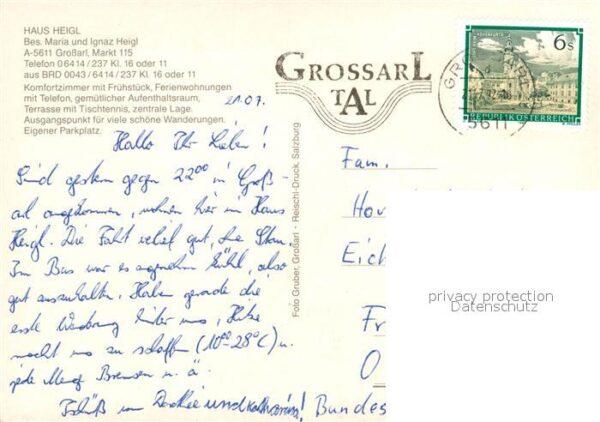 HAUS HEIGL
Bes. Maria und Ignaz Heigl
A-5611 Großarl, Markt 115
Telefon 0 64 14 / 237 Kl. 16 oder 11
aus BRD 0043 / 6414 / 237 Kl. 16 oder 11
Komfortzimmer mit Frühstück, Ferienwohnungen
mit Telefon, gemütlicher Aufenthaltsraum,
Terrasse mit Tischtennis, zentrale Lage.
Ausgangspunkt für viele schöne Wanderungen.
Eigener Parkplatz.
21.07.
Hallo Ihr Lieben!
Sind gestern gegen 22⁰⁰ in Groß-
arl angekommen, wohnen hier im Haus
Heigl. Die Fahrt verlief gut, ohne Stau.
Im Bus war es angenehm kühl, also
gut auszuhalten. Haben gerade die
erste Wanderung hinter uns, Hitze
macht uns zu schaffen (10⁰⁰-28°C) u.
jede Menge Bremsen u. ä.
Tschüß von und
Foto Gruber, Großarl · Reischl-Druck, Salzburg
GROSSARL
TAL
5611
6 S
REPUBLIK ÖSTERREICH
Fam.
Hov
Eich
Fr
O
Bundes
privacy protection
Datenschutz